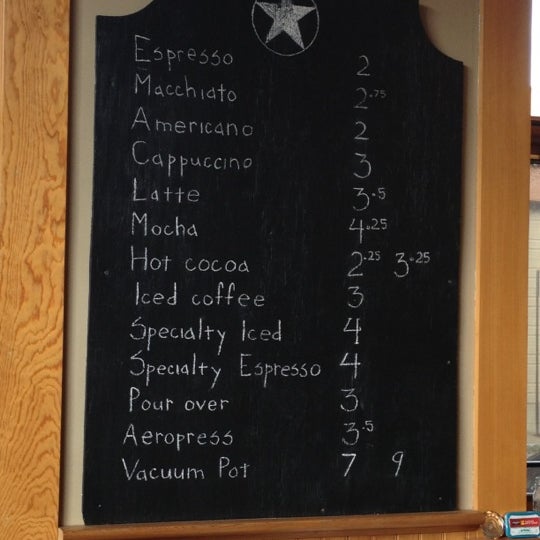 Espresso 2
Macchiato 2.75
Americano 2
Cappuccino 3
Latte 3.5
Mocha 4.25
Hot cocoa 2.25 3.25
Iced coffee 3
Specialty Iced 4
Specialty Espresso 4
Pour over 3
Aeropress 3.5
Vacuum Pot 7 9